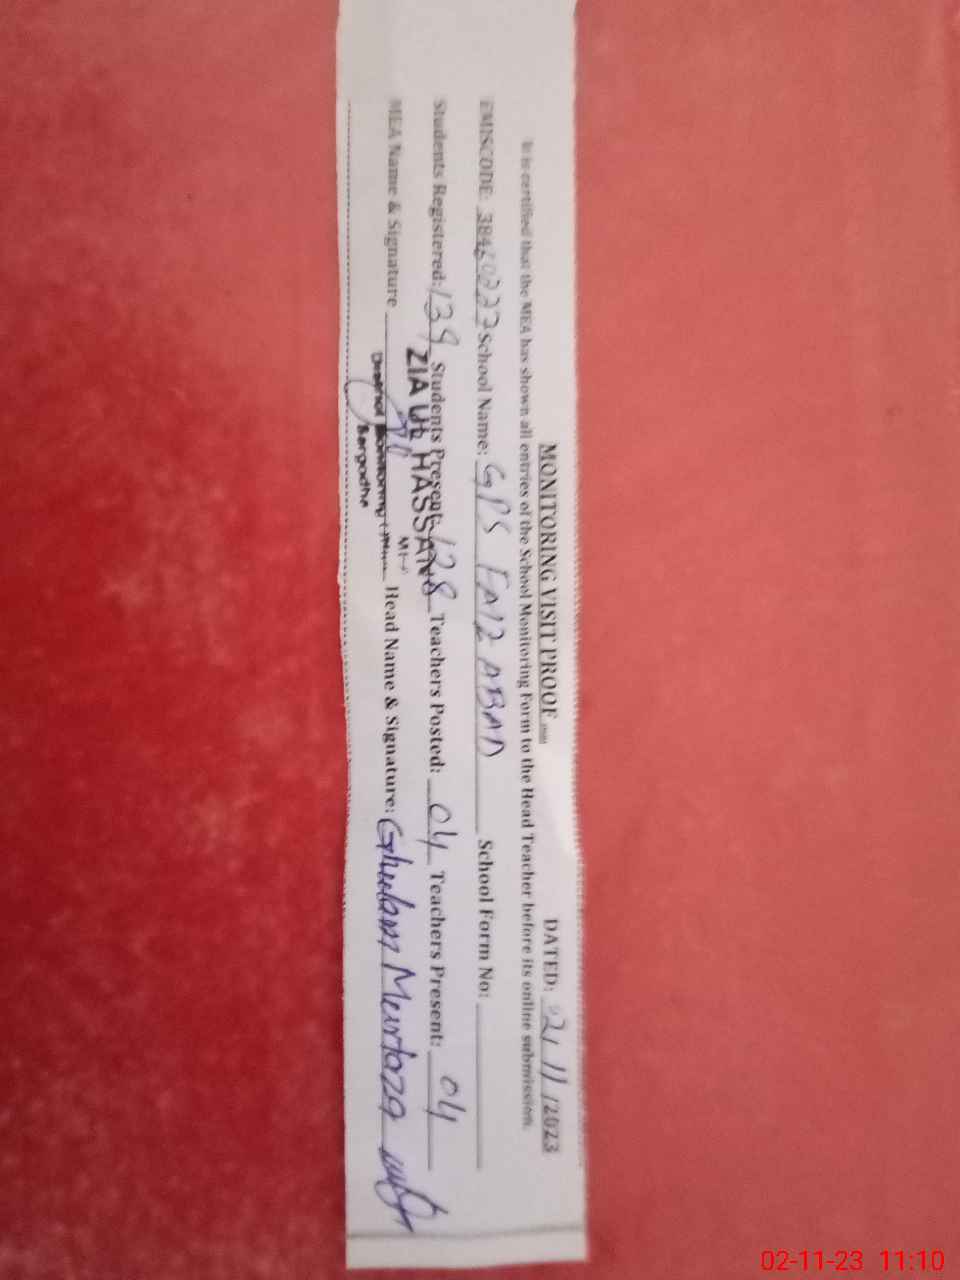 MONITORING VISIT PROOF
DATED: 2/11/2023
It is certified that the MEA has shown all entries of the School Monitoring Form to the Head Teacher before its online submission.
EMISCODE: School Name: GPS FAIZ ABAD School Form No:
Students Registered: 139 Students Present: 128 Teachers Posted: 04 Teachers Present: 04
ZIA UL HASSAN
MEA Name & Signature Head Name & Signature: Ghulam Murtaza
Monitoring
Sargodha
02-11-23 11:10